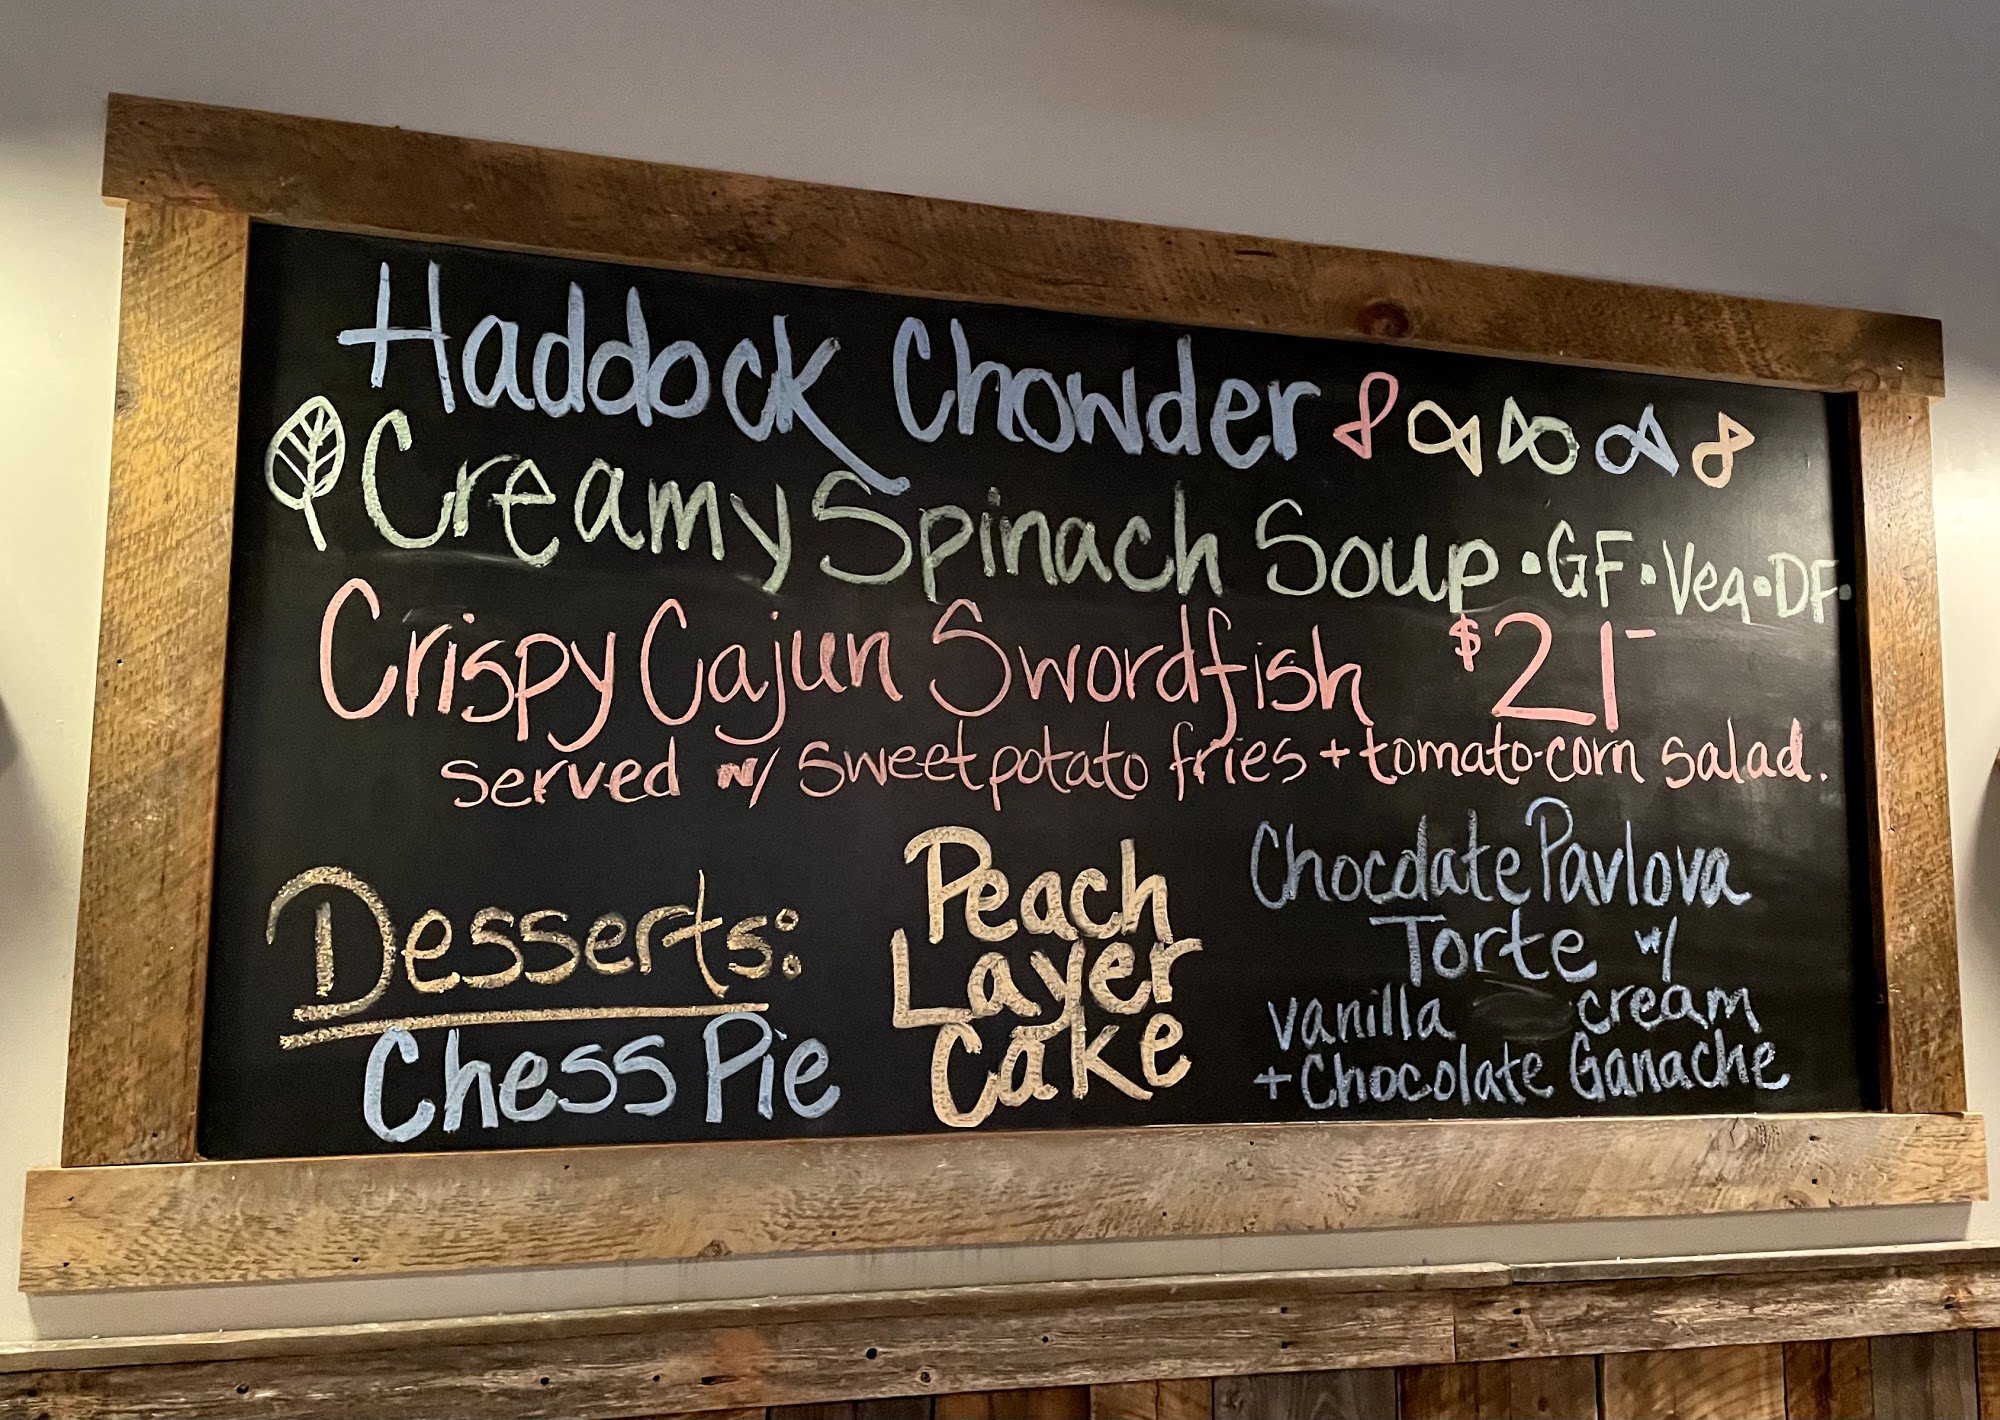 Haddock Chowder
Creamy Spinach Soup • GF • Veg • DF •
Crispy Cajun Swordfish $21-
served w/ sweet potato fries + tomato-corn salad.
Desserts:
Chess Pie
Peach
Layer
Cake
Chocolate Pavlova
Torte w/
vanilla cream
+ Chocolate Ganache